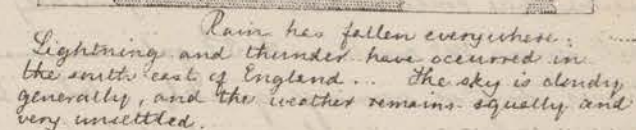 Rain has fallen everywhere.
Lightning and thunder have occurred in
the south east of England... The sky is cloudy
generally, and the weather remains squally and
very unsettled.